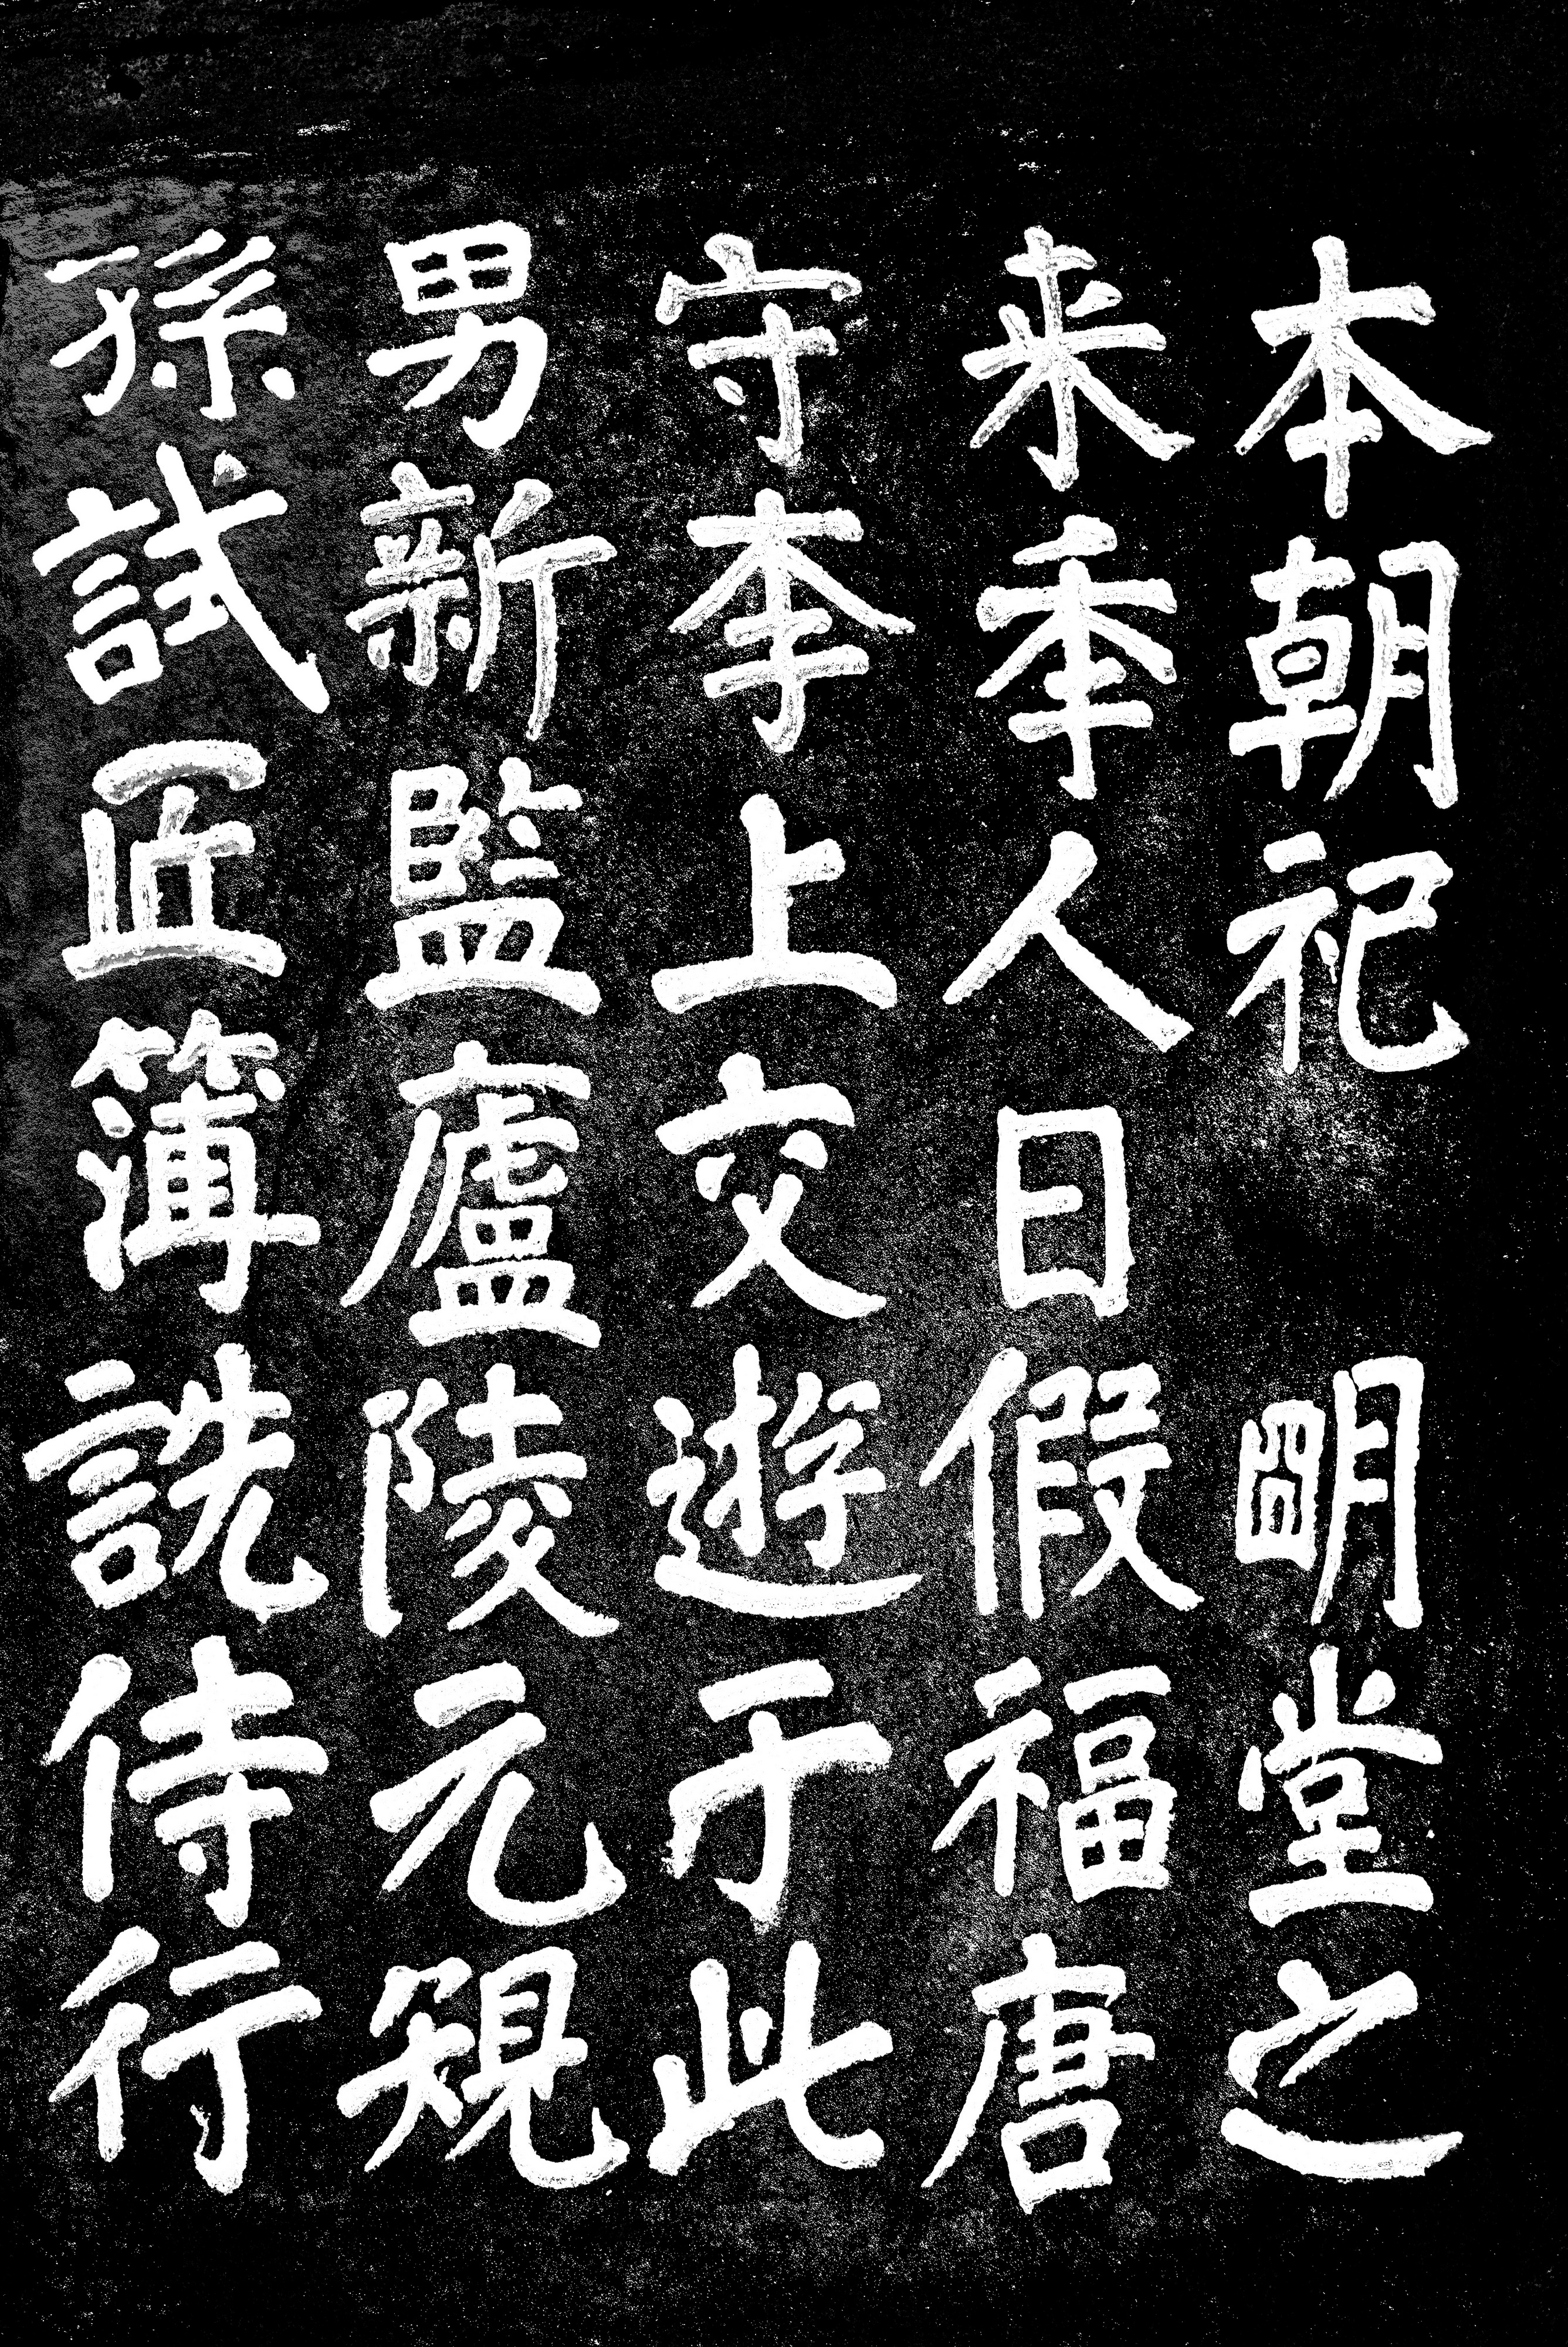 本朝祀 朙堂之
来秊人日假福唐
守李上交遊于此
男新監廬陵元䂓
孫試匠簿詵侍行